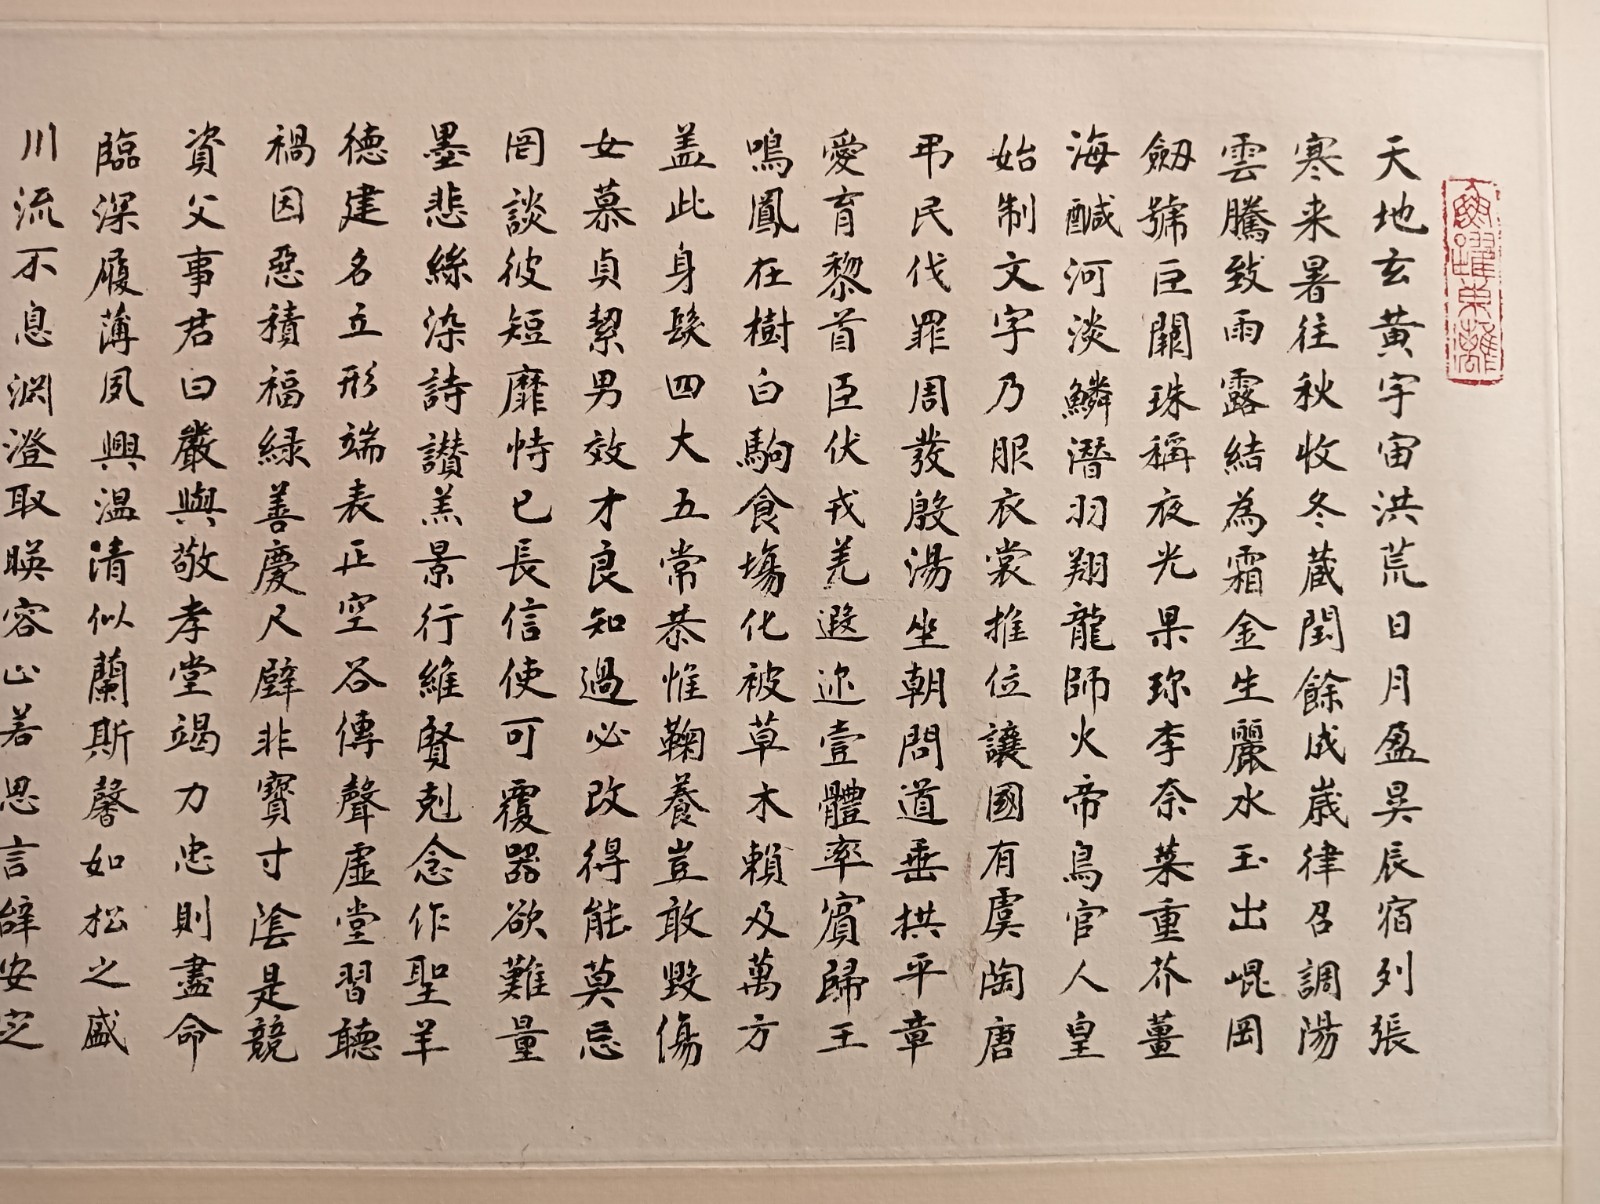 天地玄黃宇宙洪荒日月盈昃辰宿列張
寒来暑往秋收冬蔵閏餘成歲律召調陽
雲騰致雨露結為霜金生麗水玉出崐岡
劔號巨闕珠稱夜光果珎李柰菜重芥薑
海醎河淡鱗潛羽翔龍師火帝鳥官人皇
始制文字乃服衣裳推位讓國有虞陶唐
弔民伐罪周發殷湯坐朝問道垂拱平章
愛育黎首臣伏戎羌遐迩壹體率賓歸王
鳴鳳在樹白駒食場化被草木賴及萬方
盖此身髮四大五常恭惟鞠養豈敢毀傷
女慕貞絜男效才良知過必改得能莫忘
罔談彼短靡恃已長信使可覆器欲難量
墨悲絲染詩讃羔景行維賢剋念作聖羊
德建名立形端表正空谷傳聲虛堂習聽
禍因惡積福緑善慶尺璧非寶寸陰是競
資父事君曰嚴與敬孝堂竭力忠則盡命
臨深履薄夙興温清似蘭斯馨如松之盛
川流不息淵澄取暎容止若思言辭安定